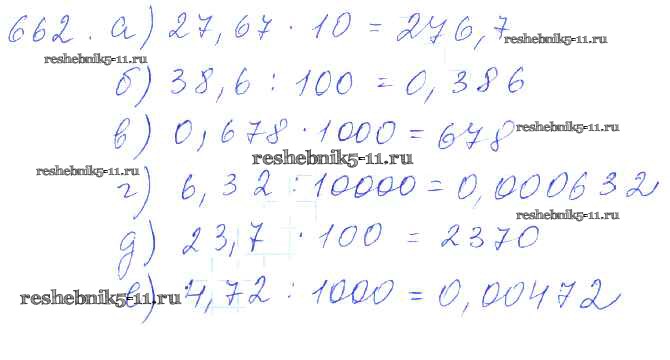 662. а) 27,67 · 10 = 276,7
reshebnik5-11.ru
reshebnik5-11.ru
б) 38,6 : 100 = 0,386
в) 0,678 · 1000 = 678
reshebnik5-11.ru
reshebnik5-11.ru
reshebnik5-11.ru
г) 6,32 : 10000 = 0,000632
reshebnik5-11.ru
д) 23,7 · 100 = 2370
reshebnik5-11.ru
е) 4,72 : 1000 = 0,00472